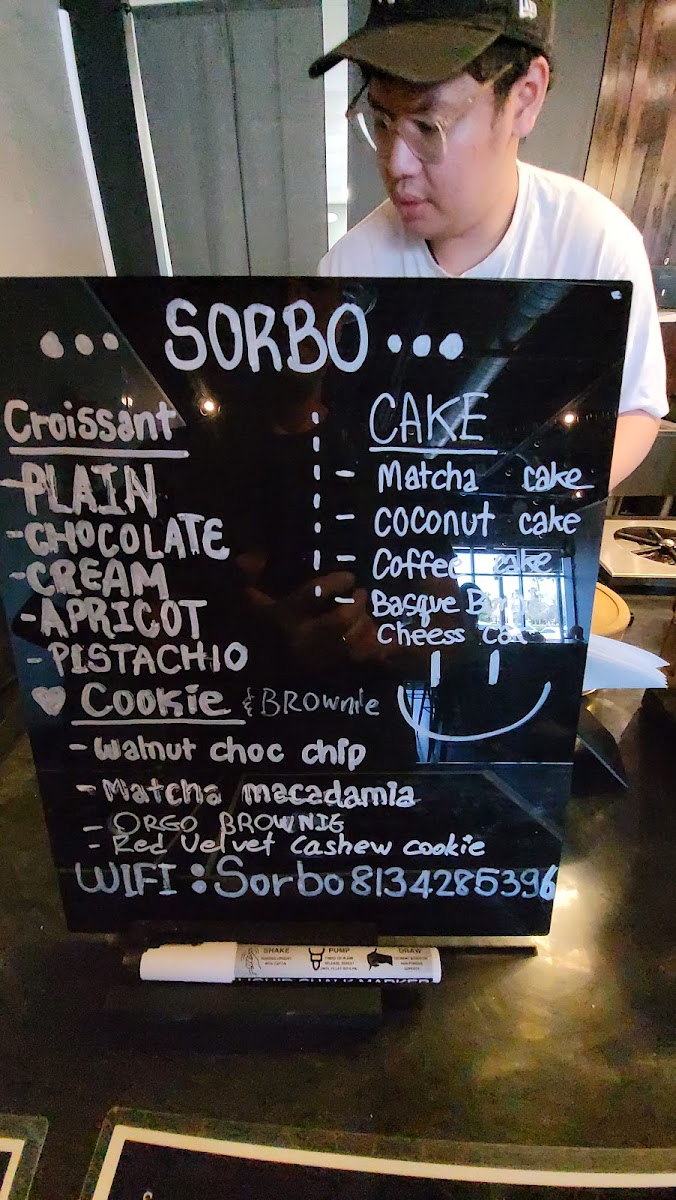 ... SORBO ...
Croissant
-PLAIN
-CHOCOLATE
-CREAM
-APRICOT
-PISTACHIO
CAKE
- Matcha cake
- COCONUT cake
- Coffee cake
- Basque
Cheess
♥ Cookie & BROWNIE
- Walnut choc chip
- Matcha macadamia
- ORGO BROWNIE
- Red Velvet Cashew cookie
WIFI : Sorbo8134285396
SHAKE PUMP DRAW
LIQUID CHALK MARKER